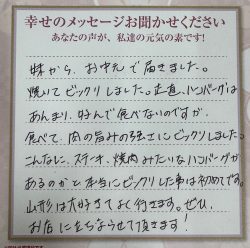 幸せのメッセージお聞かせください
あなたの声が、私達の元気の素です!
妹から、お中元で届きました。
焼いてビックリしました。正直、ハンバーグは
あんまり、好んで食べないのですが、
食べて、肉の旨みの強さにビックリしました。
こんなに、ステーキ、焼肉みたいなハンバーグが
あるのかと本当にビックリした事は初めてです。
山形は大好きでよく行きます。ぜひ、
お店に立ちよらせて頂きます!